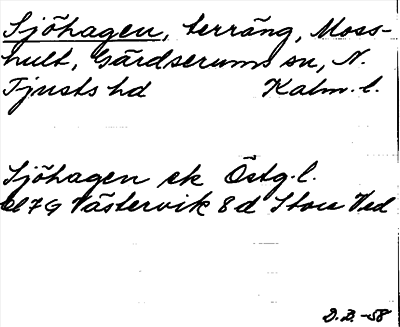 Sjöhagen, terräng, Moss-
hult, Gärdserums sn, N.
Tjusts hd Kalm. l.
Sjöhagen ek Östg. l.
7G Västervik 8d Stora Ved
D.D. -58